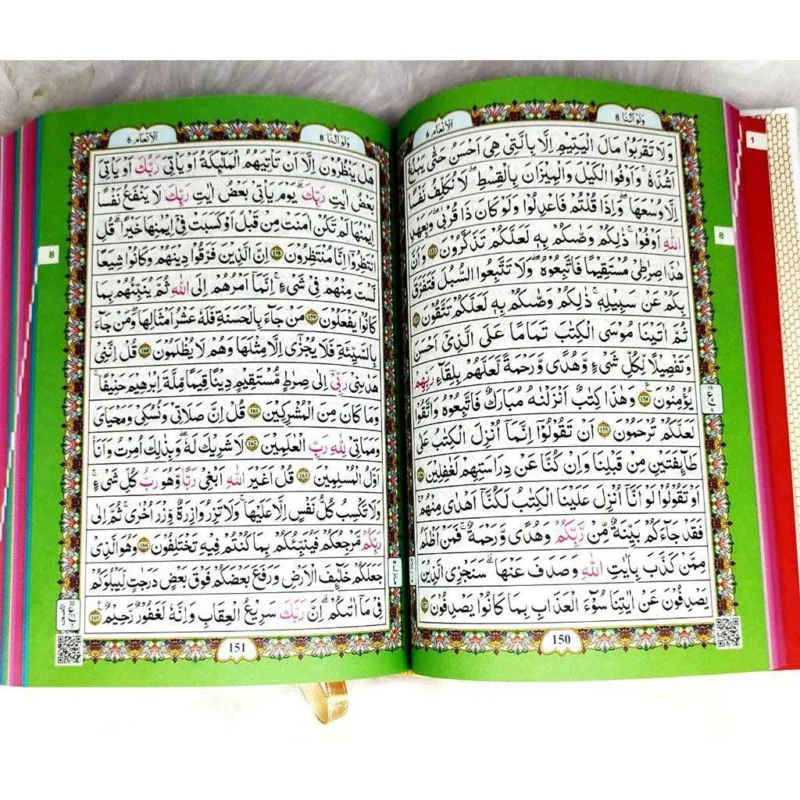 وَلَوْ اَنَّنَا 8 اَلْاَنْعَام 6
وَلَا تَقْرَبُوْا مَالَ الْيَتِيْمِ اِلَّا بِالَّتِيْ هِيَ اَحْسَنُ حَتّٰى يَبْلُغَ
اَشُدَّهٗ ۚ وَاَوْفُوا الْكَيْلَ وَالْمِيْزَانَ بِالْقِسْطِ ۚ لَا نُكَلِّفُ نَفْسًا
اِلَّا وُسْعَهَا ۚ وَاِذَا قُلْتُمْ فَاعْدِلُوْا وَلَوْ كَانَ ذَا قُرْبٰى ۚ وَبِعَهْدِ
اللّٰهِ اَوْفُوْا ؕ ذٰلِكُمْ وَصّٰىكُمْ بِهٖ لَعَلَّكُمْ تَذَكَّرُوْنَ ۝ وَاَنَّ
هٰذَا صِرَاطِيْ مُسْتَقِيْمًا فَاتَّبِعُوْهُ ۚ وَلَا تَتَّبِعُوا السُّبُلَ فَتَفَرَّقَ
بِكُمْ عَنْ سَبِيْلِهٖ ؕ ذٰلِكُمْ وَصّٰىكُمْ بِهٖ لَعَلَّكُمْ تَتَّقُوْنَ ۝
ثُمَّ اٰتَيْنَا مُوْسَى الْكِتٰبَ تَمَامًا عَلَى الَّذِيْٓ اَحْسَنَ
وَتَفْصِيْلًا لِّكُلِّ شَيْءٍ وَّهُدًى وَّرَحْمَةً لَّعَلَّهُمْ بِلِقَآءِ رَبِّهِمْ
يُؤْمِنُوْنَ ۝ وَهٰذَا كِتٰبٌ اَنْزَلْنٰهُ مُبٰرَكٌ فَاتَّبِعُوْهُ وَاتَّقُوْا
لَعَلَّكُمْ تُرْحَمُوْنَ ۝ اَنْ تَقُوْلُوْٓا اِنَّمَآ اُنْزِلَ الْكِتٰبُ عَلٰى
طَآئِفَتَيْنِ مِنْ قَبْلِنَا وَاِنْ كُنَّا عَنْ دِرَاسَتِهِمْ لَغٰفِلِيْنَ ۝
اَوْ تَقُوْلُوْا لَوْ اَنَّآ اُنْزِلَ عَلَيْنَا الْكِتٰبُ لَكُنَّآ اَهْدٰى مِنْهُمْ ۚ
فَقَدْ جَآءَكُمْ بَيِّنَةٌ مِّنْ رَّبِّكُمْ وَهُدًى وَّرَحْمَةٌ ۚ فَمَنْ اَظْلَمُ
مِمَّنْ كَذَّبَ بِاٰيٰتِ اللّٰهِ وَصَدَفَ عَنْهَا ؕ سَنَجْزِي الَّذِيْنَ
يَصْدِفُوْنَ عَنْ اٰيٰتِنَا سُوْٓءَ الْعَذَابِ بِمَا كَانُوْا يَصْدِفُوْنَ ۝
150
8
1
وَلَوْ اَنَّنَا 8 اَلْاَنْعَام 6
هَلْ يَنْظُرُوْنَ اِلَّآ اَنْ تَاْتِيَهُمُ الْمَلٰٓئِكَةُ اَوْ يَاْتِيَ رَبُّكَ اَوْ يَاْتِيَ
بَعْضُ اٰيٰتِ رَبِّكَ ؕ يَوْمَ يَاْتِيْ بَعْضُ اٰيٰتِ رَبِّكَ لَا يَنْفَعُ نَفْسًا
اِيْمَانُهَا لَمْ تَكُنْ اٰمَنَتْ مِنْ قَبْلُ اَوْ كَسَبَتْ فِيْٓ اِيْمَانِهَا خَيْرًا ؕ قُلِ
انْتَظِرُوْٓا اِنَّا مُنْتَظِرُوْنَ ۝ اِنَّ الَّذِيْنَ فَرَّقُوْا دِيْنَهُمْ وَكَانُوْا شِيَعًا
لَّسْتَ مِنْهُمْ فِيْ شَيْءٍ ؕ اِنَّمَآ اَمْرُهُمْ اِلَى اللّٰهِ ثُمَّ يُنَبِّئُهُمْ بِمَا
كَانُوْا يَفْعَلُوْنَ ۝ مَنْ جَآءَ بِالْحَسَنَةِ فَلَهٗ عَشْرُ اَمْثَالِهَا ۚ وَمَنْ جَآءَ
بِالسَّيِّئَةِ فَلَا يُجْزٰٓى اِلَّا مِثْلَهَا وَهُمْ لَا يُظْلَمُوْنَ ۝ قُلْ اِنَّنِيْ
هَدٰىنِيْ رَبِّيْٓ اِلٰى صِرَاطٍ مُّسْتَقِيْمٍ ۚ دِيْنًا قِيَمًا مِّلَّةَ اِبْرٰهِيْمَ حَنِيْفًا ۚ
وَمَا كَانَ مِنَ الْمُشْرِكِيْنَ ۝ قُلْ اِنَّ صَلَاتِيْ وَنُسُكِيْ وَمَحْيَايَ
وَمَمَاتِيْ لِلّٰهِ رَبِّ الْعٰلَمِيْنَ ۝ لَا شَرِيْكَ لَهٗ ۚ وَبِذٰلِكَ اُمِرْتُ وَاَنَا
اَوَّلُ الْمُسْلِمِيْنَ ۝ قُلْ اَغَيْرَ اللّٰهِ اَبْغِيْ رَبًّا وَّهُوَ رَبُّ كُلِّ شَيْءٍ ؕ
وَلَا تَكْسِبُ كُلُّ نَفْسٍ اِلَّا عَلَيْهَا ۚ وَلَا تَزِرُ وَازِرَةٌ وِّزْرَ اُخْرٰى ۚ ثُمَّ اِلٰى
رَبِّكُمْ مَّرْجِعُكُمْ فَيُنَبِّئُكُمْ بِمَا كُنْتُمْ فِيْهِ تَخْتَلِفُوْنَ ۝ وَهُوَ الَّذِيْ
جَعَلَكُمْ خَلٰٓئِفَ الْاَرْضِ وَرَفَعَ بَعْضَكُمْ فَوْقَ بَعْضٍ دَرَجٰتٍ لِّيَبْلُوَكُمْ
فِيْ مَآ اٰتٰىكُمْ ؕ اِنَّ رَبَّكَ سَرِيْعُ الْعِقَابِ ۖ وَاِنَّهٗ لَغَفُوْرٌ رَّحِيْمٌ ۝
151
8